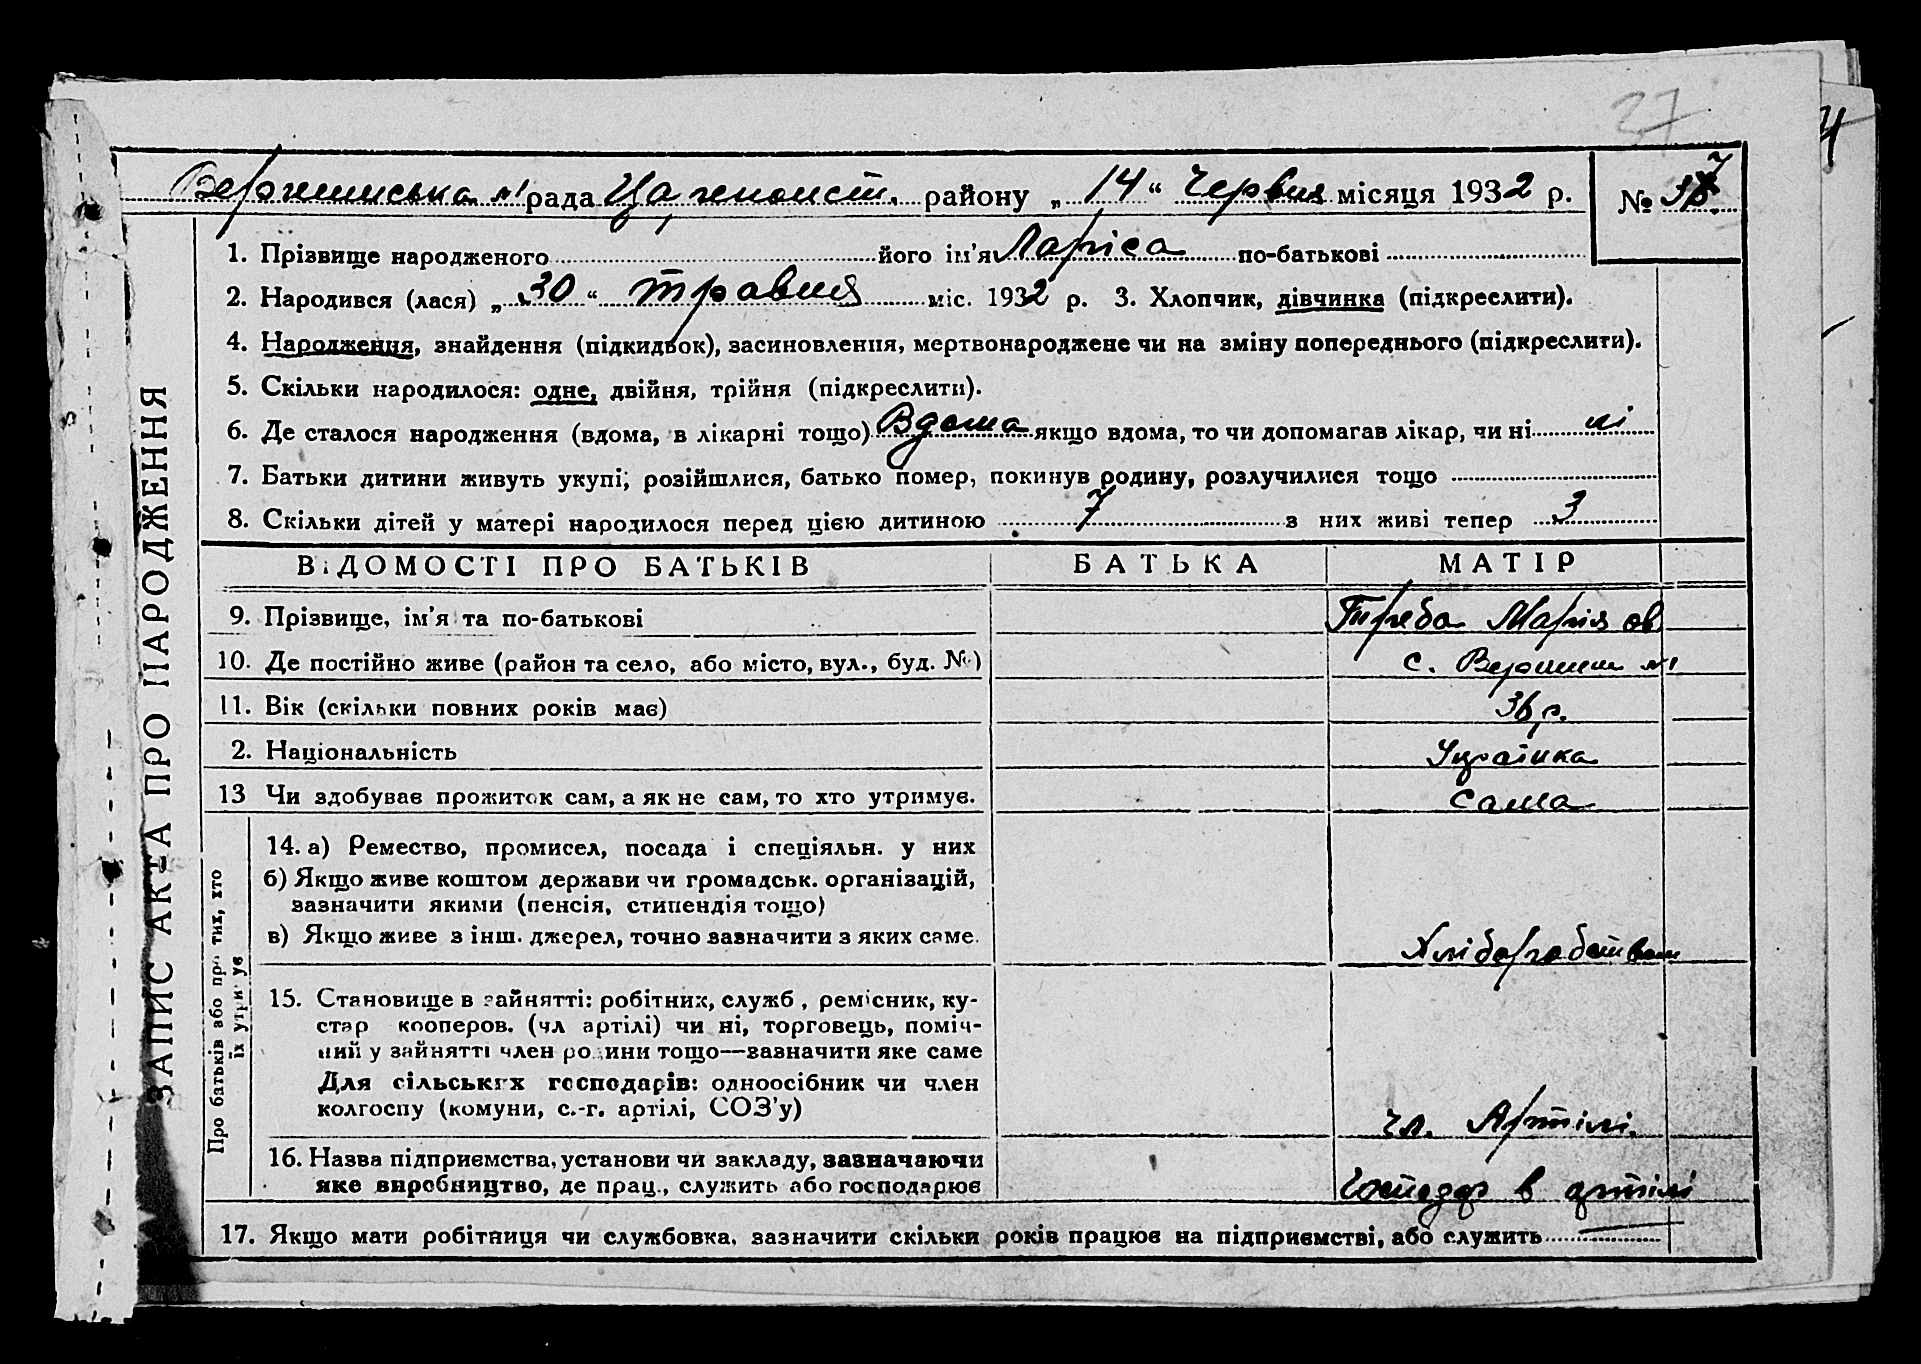 27
рада района „ 14 “ Червня місяця 1932 р. № 37
1. Прізвище народженого його ім'я Ларіса по-батькові
2. Народився (лася) „ 30 “ травня міс. 1932 р. 3. Хлопчик, дівчинка (підкреслити).
4. Народження, знайдення (підкидьок), засиновлення, мертвонароджене чи на зміну попереднього (підкреслити).
5. Скільки народилося: одне, двійня, трійня (підкреслити).
6. Де сталося народження (вдома, в лікарні тощо) Вдома якщо вдома, то чи допомагав лікар, чи ні ні
7. Батьки дитини живуть укупі; розійшлися, батько помер, покинув родину, розлучилися тощо
8. Скільки дітей у матері народилося перед цією дитиною 7 з них живі тепер 3
ВІДОМОСТІ ПРО БАТЬКІВ БАТЬКА МАТІР
9. Прізвище, ім'я та по-батькові Треба Марія
10. Де постійно живе (район та село, або місто, вул., буд. №) с.
11. Вік (скільки повних років має) 36 р.
2. Національність Українка
13 Чи здобуває прожиток сам, а як не сам, то хто утримує. Сама
14. а) Ремество, промисел, посада і спеціяльн. у них
б) Якщо живе коштом держави чи громадськ. організацій,
зазначити якими (пенсія, стипендія тощо)
в) Якщо живе з інш. джерел, точно зазначити з яких саме.
Хліборобством
15. Становище в зайнятті: робітник, служб, ремісник, ку-
стар кооперов. (чл артілі) чи ні, торговець, поміч-
ний у зайнятті член родини тощо—зазначити яке саме
Для сільських господарів: одноосібник чи член
колгоспу (комуни, с.-г. артілі, СОЗ'у)
чл. Артілі.
16. Назва підприємства, установи чи закладу, зазначаючи
яке виробництво, де прац., служить або господарює
Господар в артілі
17. Якщо мати робітниця чи службовка, зазначити скільки років працює на підприємстві, або служить
ЗАПИС АКТА ПРО НАРОДЖЕННЯ
Про батьків або про тих, хто
їх утримує